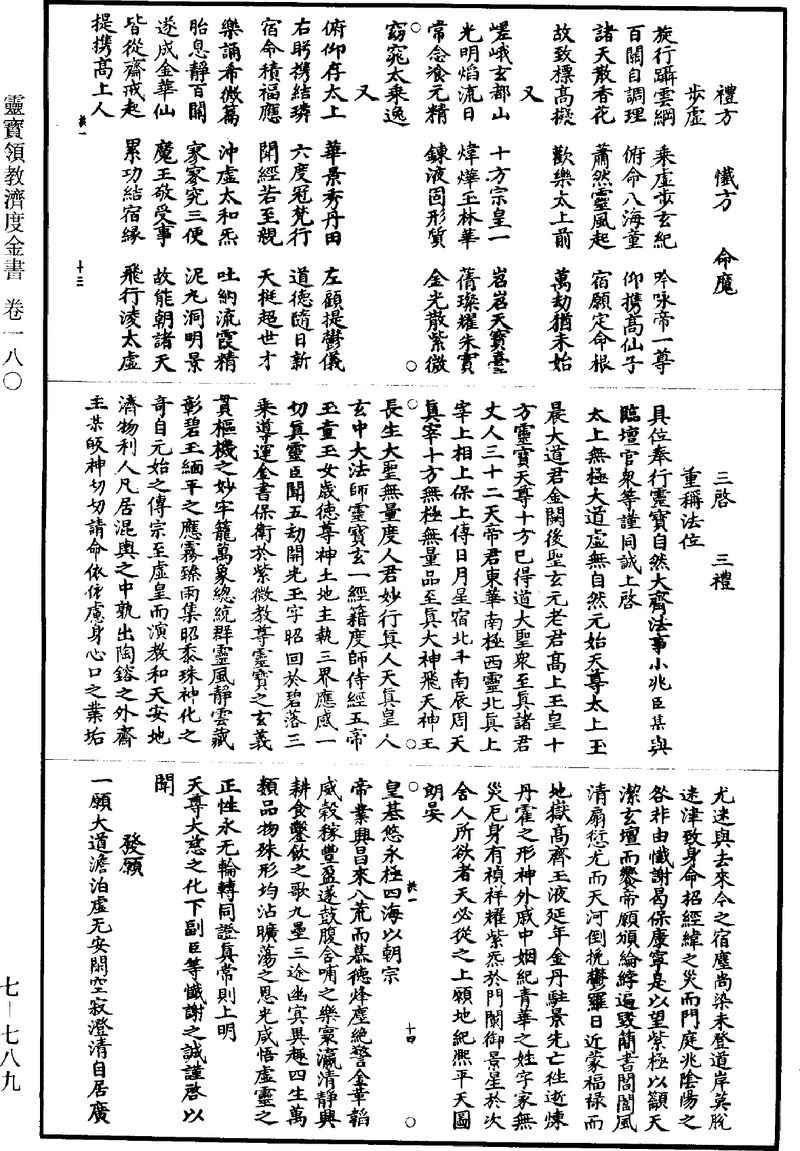 靈寶領教濟度金書 卷一八〇
七－七八九
禮方 懺方 命魔
步虛
旋行躡雲綱 乘虛步玄紀 吟咏帝一尊
百關自調理 俯命八海童 仰携高仙子
諸天散香花 蕭然靈風起 宿願定命根
故致標高擬 歡樂太上前 萬劫猶未始
又
嵯峨玄都山 十方宗皇一 岧岧天寶臺
光明焰流日 煒燁玉林華 蒨璨耀朱實
常念飡元精 鍊液固形質 金光散紫微
窈窕太乘逸
又
俯仰存太上 華景秀丹田 左顧提鬱儀
右眄携結璘 六度冠梵行 道德隨日新
宿命積福應 聞經若至親 天挺超世才
樂誦希微篇 沖虛太和炁 吐納流霞精
胎息靜百關 寥寥究三便 泥丸洞明景
遂成金華仙 魔王敬受事 故能朝諸天
皆從齋戒起 累功結宿緣 飛行淩太虛
提携高上人
三啓 三禮
重稱法位
具位奉行靈寶自然大齋法事小兆臣某與
臨壇官衆等謹同誠上啓
太上無極大道虛無自然元始天尊太上玉
晨大道君金闕後聖玄元老君高上玉皇十
方靈寶天尊十方已得道大聖衆至眞諸君
丈人三十二天帝君東華南極西靈北眞上
宰上相上保上傅日月星宿北斗南辰周天
眞宰十方無極無量品至眞大神飛天神王
長生大聖無量度人君妙行眞人天眞皇人
玄中大法師靈寶玄一經籍度師侍經五帝
玉童玉女歲德尊神土地主執三界應感一
切眞靈臣聞五劫開光玉字昭回於碧落三
乘導運金書保衛於紫微敎尊靈寶之玄義
貫樞機之妙牢籠萬象總統群靈風靜雲藏
彰碧玉緬平之應霧臻雨集昭黍珠神化之
奇自元始之傳宗至虛皇而演教和天安地
濟物利人凡居混輿之中孰出陶鎔之外齋
主某皈神切切請命依依慮身心口之業垢
尤迷與去來今之宿塵尚染未登道岸莫脫
迷津致身命招經緯之災而門庭兆陰陽之
咎非由懺謝曷保康寧是以望紫極以籲天
潔玄壇而饗帝願頒綸綍遍毀簡書閶闔風
清扇愆尤而天河倒挽鬱羅日近蒙福祿而
地獄高齊玉液延年金丹駐景先亡徃逝煉
丹霍之形神外戚中姻紀青華之姓字家無
災厄身有禎祥耀紫炁於門闌御景星於次
舍人所欲者天必從之上願地紀熙平天圖
朗晏
皇基悠永極四海以朝宗
帝業興昌來八荒而慕德烽塵絕警金革韜
威榖稼豐盈遂鼓腹含哺之樂寰瀛清靜興
耕食鑿飲之歌九壘三途幽寞異趣四生萬
類品物殊形均沾曠蕩之恩光咸悟虛靈之
正性永无輪轉同證眞常則上明
天尊大慈之化下副臣等懺謝之誠謹啓以
聞
發願
一願大道澹泊虛无安閑空寂澄清自居廣
十三
十四